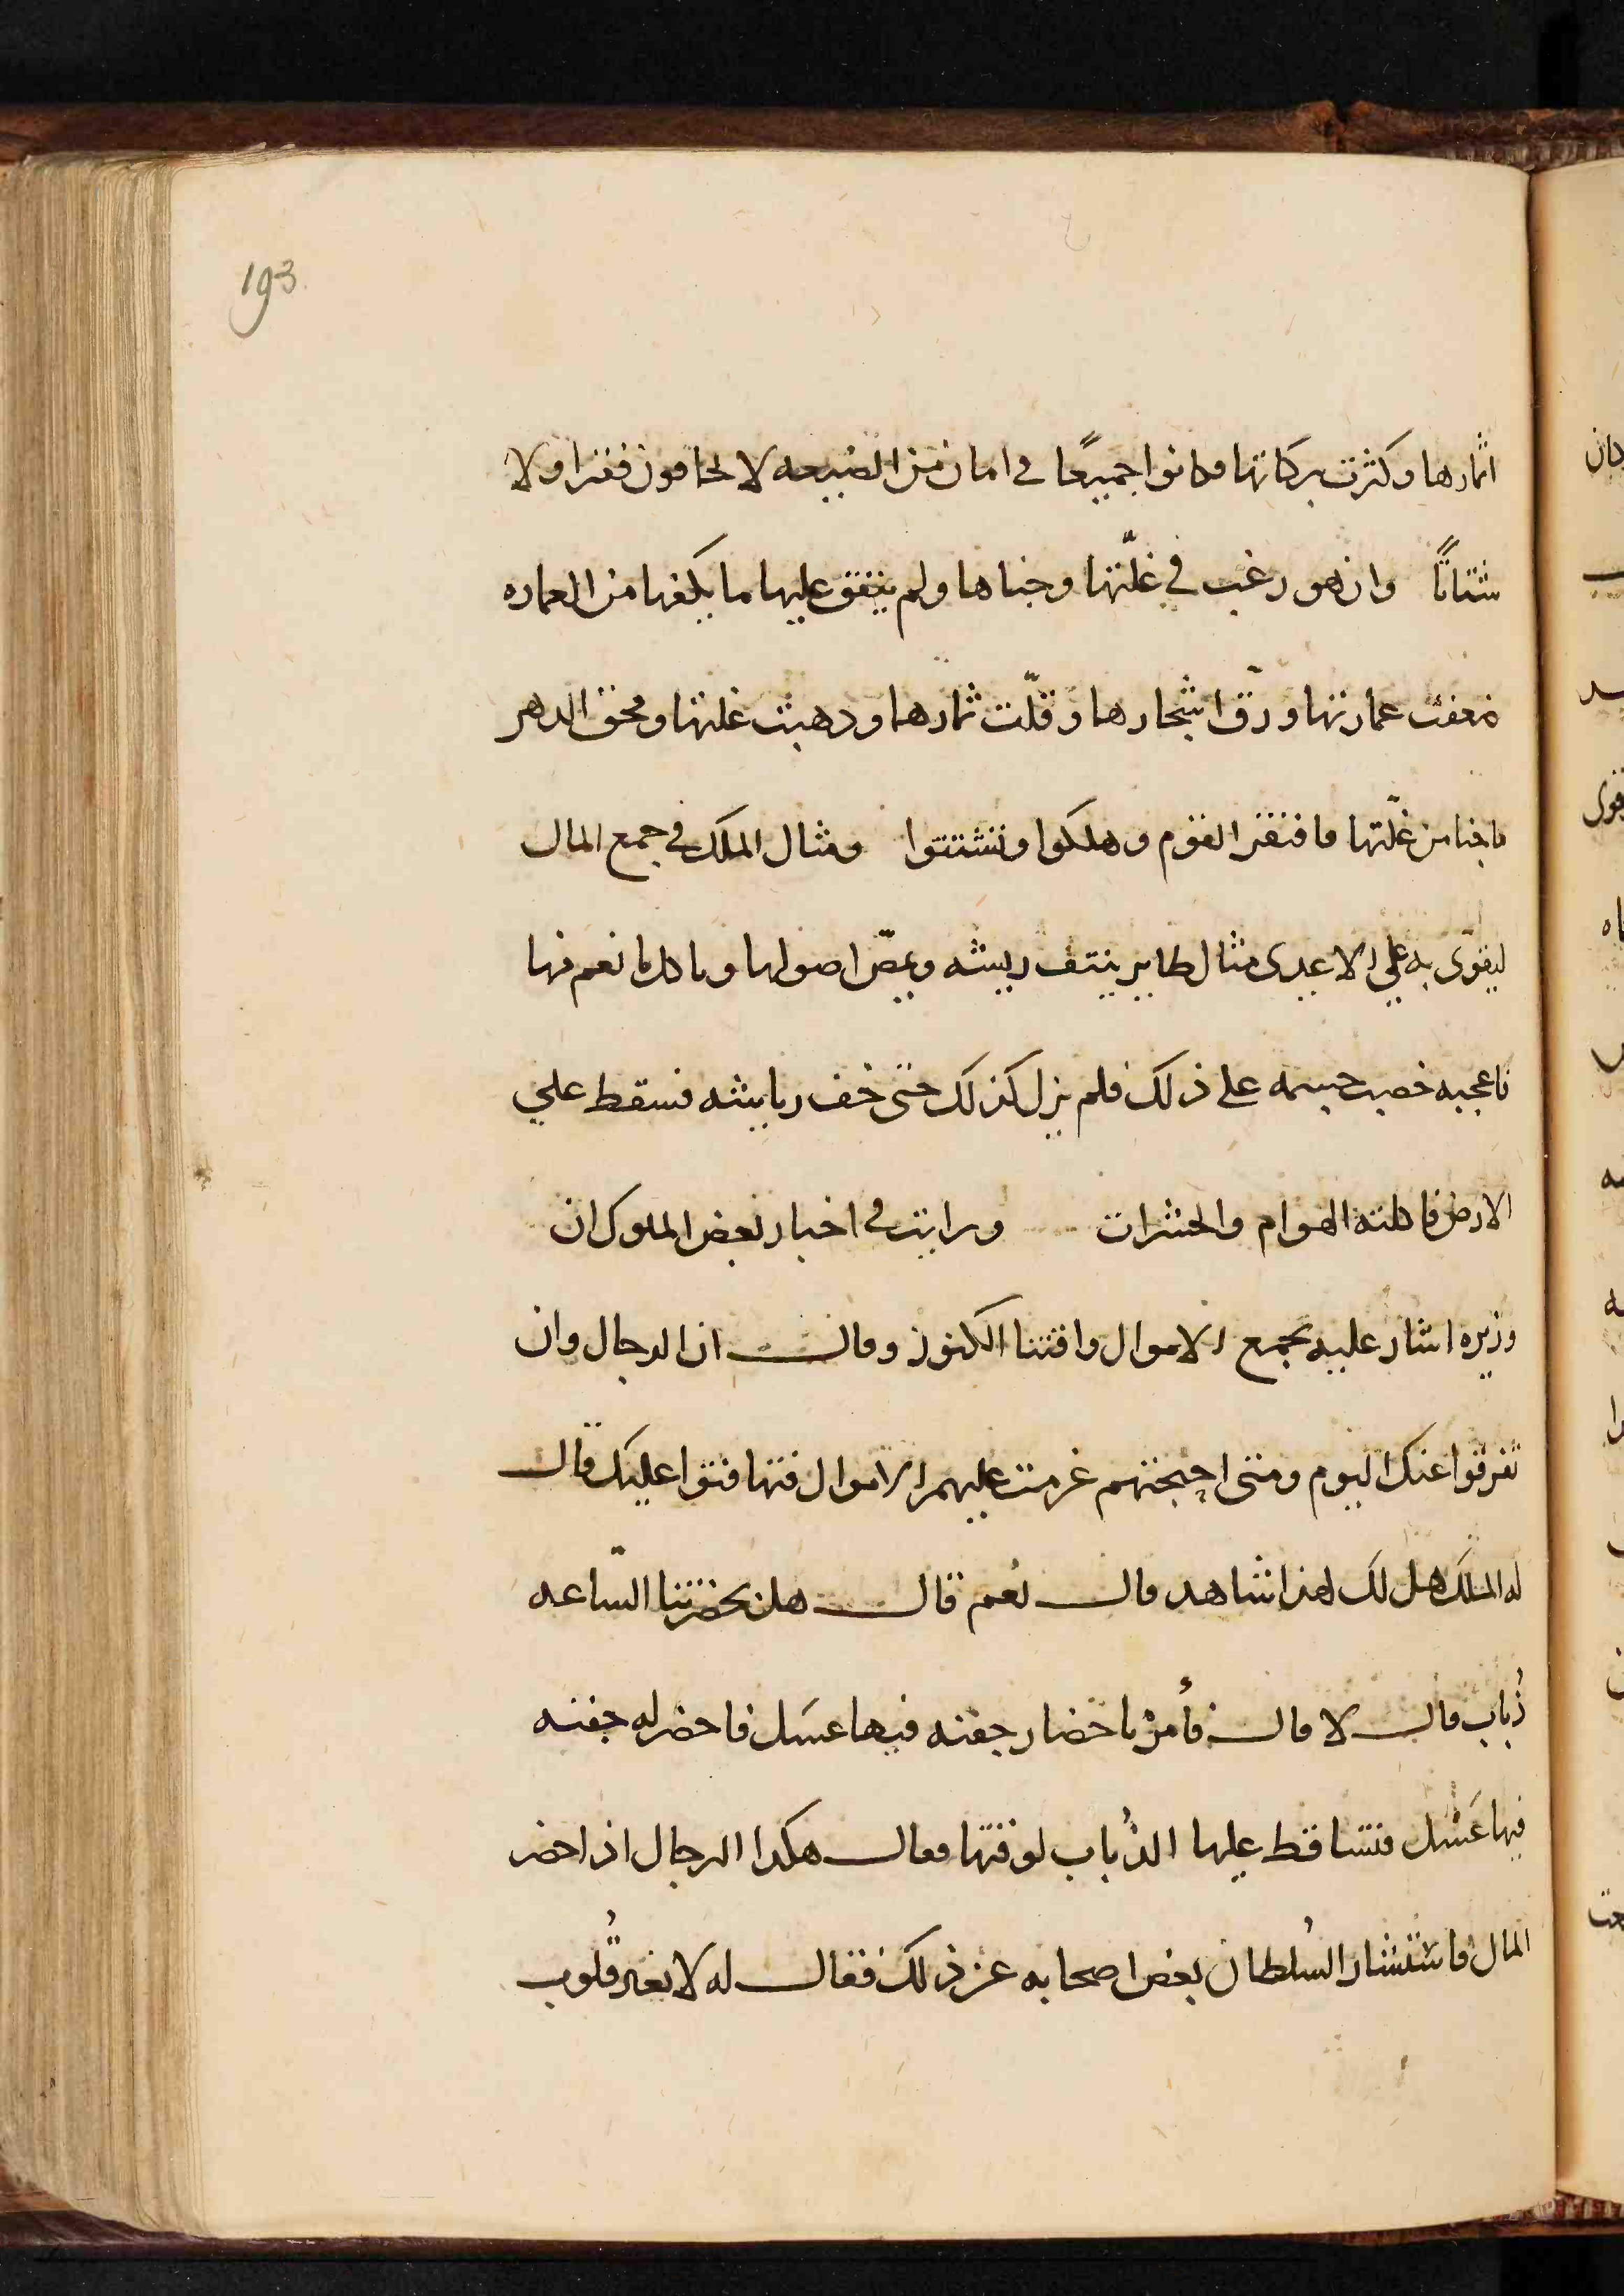 193
اثمارها وكثرت بركاتها وكانوا جميعًا في امان من الضيعه لا يخافون فقرا ولا
شتاتًا وان هو رغب في غلّتها وجناها ولم ينفق عليها ما يكفها من العماره
ضعفت عمارتها ورق اشجارها وقلّت ثمارها ودهبت غلتها ومحق الدهر
ما جنا من غلّتها فافتقر القوم وهلكوا وتشتتوا ومثال الملك في جمع المال
ليقوّى به على الاعدى مثال طاير ينتف ريشه ويمصّ اصولها وياكل ما نعم منها
فاعجبه خصب جسمه على ذلك فلم يزل كذلك حتى خف ريابشه فسقط علي
الارض فاكلته الهوام والحشرات ورايت في اخبار بعض الملوك ان
وزيره اشار عليه بجمع الاموال واقتنا الكنوز وقال ان الرجال وان
تفرقوا عنك اليوم ومتى احتجتهم عرمت عليهم الاموال فتهافتوا عليك قال
له الملك هل لك لهذا شاهد قال نعم قال هل بحضرتنا السّاعه
ذُباب قال لا قال فأمرْ باحضار جفنه فيها عسَل فاحضر له جفنه
فيها عَسَل فتساقط عليها الذُباب لوقتها فقال هكدا الرجال اذا حضر
المال فاستشار السُلطان بعض اصحابه عن ذلك فقال له لا تغير قُلوب